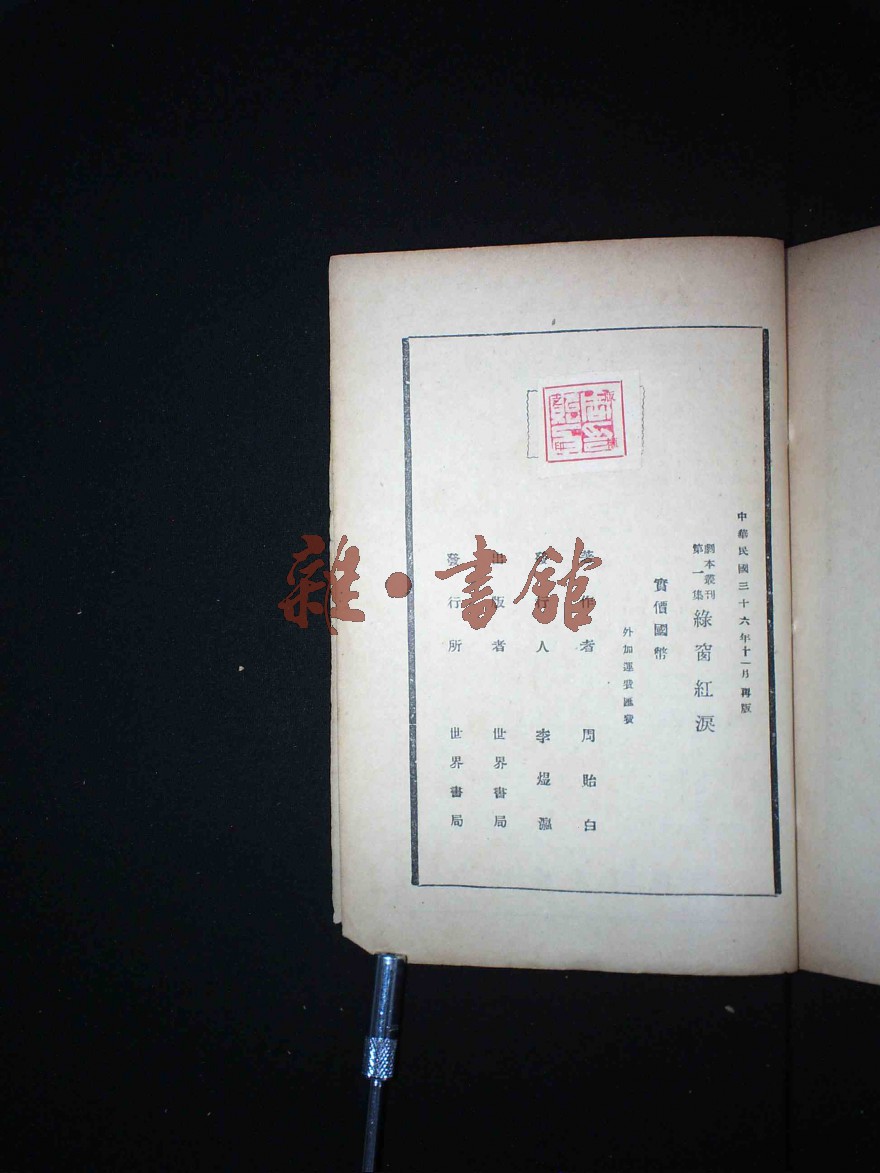 中華民國三十六年十一月再版
劇本叢刊
第一集
綠窗紅淚
實價國幣
外加運費匯費
著作者 周貽白
發行人 李煜瀛
出版者 世界書局
發行所 世界書局
雜·書館